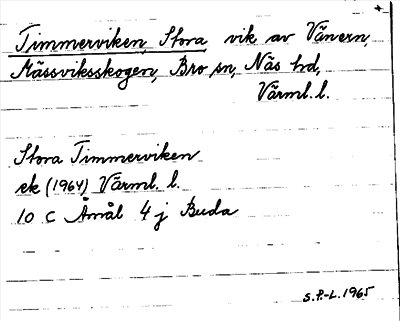 Timmerviken, Stora vik av Vänern,
Mässviksskogen, Bro sn, Näs hd,
Värml. l.
Stora Timmerviken
ek (1964) Värml. l.
10 C Åmål 4 j Buda
S.P.-L. 1965